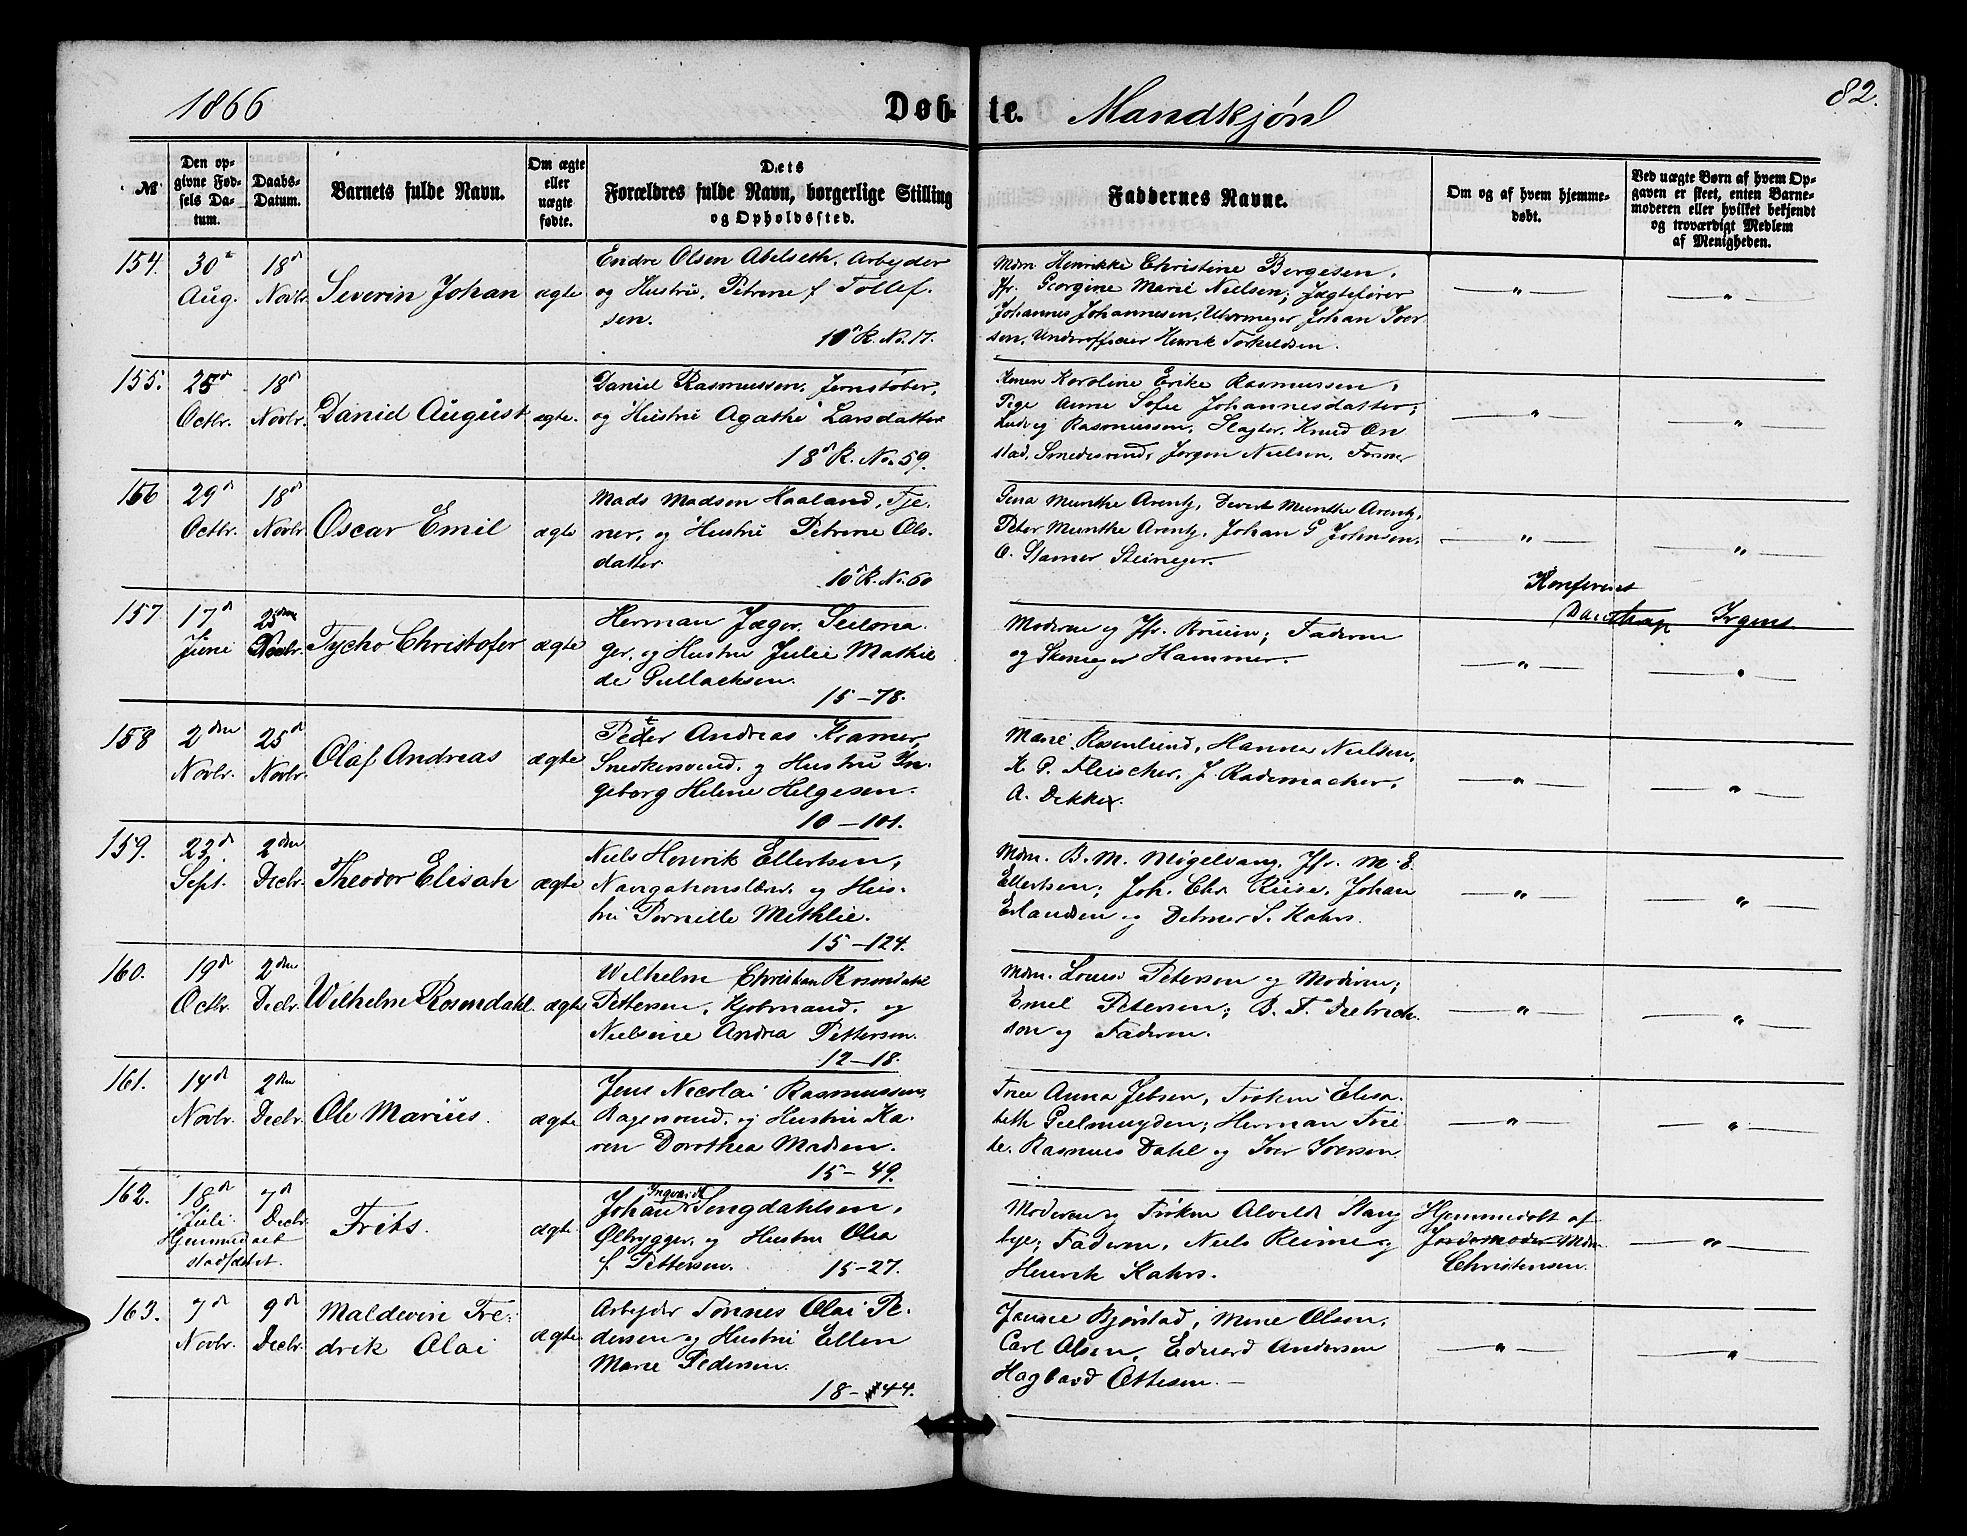 1866 Døbte. Mandkjøn 82.
№
Den opgivne Fødsels Datum.
Daabs-Datum.
Barnets fulde Navn.
Om ægte eller uægte fødte.
Dets Forældres fulde Navn, borgerlige Stilling og Opholdssted.
Faddernes Navne.
Om og af hvem hjemmedøbt.
Ved uægte Børn af hvem Opgaven er skeet, enten Barnemoderen eller hvilket bekjendt og troværdigt Medlem af Menigheden.
154. 30te Aug. 18d Novbr. Severin Johan ægte
Endre Olsen Abelseth, Arbeyder
og Hustru, Petrine f Tollef-
sen.
10d R. No. 17.
Mdm. Henrikke Christine Bergesen,
Jfr. Georgine Marie Nielsen; Jægtefører
Johannes Johannesen, Uhrmager Johan Iver
sen, Underofficier Henrik Torkeldsen.
155. 25d Octbr. 18d Novbr. Daniel August ægte.
Daniel Rasmussen, Jernstøber,
og Hustru Agathe Larsdatter
18d R. No. 59.
Konen Karoline Erike Rasmussen,
Pige Anne Sofie Johannesdatter;
Ludvig Rasmussen, Slagter, Knud On
stad, Smedesvend, Jørgen Nielsen, Former
156 29d Octbr. 18d Novbr Oscar Emil ægte
Mads Madsen Haaland, Tje-
ner, og Hustru Petrine Ols-
datter
10d R. No. 60
Gina Munthe Arentz, Devert Munthe Arentz,
Peter Munthe Arentz, Johan G Johnsen,
O. Stamer Steineger.
Konfereret
157 17d Juni 25den Novbr. Tycho Christofer ægte
Herman Jæger, Seilma
ger, og Hustru Julie Mathil
de Gullachsen.
15-78.
Moderen og Jfr. Bruun; Faderen
og Skomager Hammer.
Irgens
158 2den Novbr. 25d Novbr. Olaf Andreas ægte
Peter Andreas Kramer,
Snedkersvend, og Hustru In-
geborg Helene Helgesen.
10-101.
Marie Rosenlund, Hanna Nielsen,
K P. Fleischer, J. Rademacher,
A. Dekker.
159. 23d Sept. 2den Decbr. Theodor Elisah ægte
Niels Henrik Ellertsen,
Navigationslærer, og Hus-
tru Pernille Methlie.
15-124.
Mdm. B. M. Møgelvang, Jfr. M. E.
Ellertsen; Joh. Chr Riise, Johan
Erlandsen og Detmer S. Kahrs.
160. 19d Octbr. 2den Decbr. Wilhelm Rosendahl. ægte
Wilhelm Christian Rosendahl
Pettersen, Kjøbmand, og
Nielsine Andrea Pettersen.
12-18.
Mdm. Louise Petersen og Moderen;
Emil Petersen; B. F. Diedrich-
son og Faderen.
161. 14d Novbr. 2den Decbr. Ole Marius. ægte
Jens Nicolai Rasmussen,
Bagersvend, og Hustru Ka-
ren Dorothea Madsen.
15-49.
Frue Anna Jebsen, Frøken Elisa
beth Geelmuyden; Herman Frie
le, Rasmus Dahl og Iver Iversen.
162. 18d Juli. 7d Decbr. Frits. ægte
Hjemmedaab
stadfæstet.
Ingvald
Johan Sengdahlsen,
Ølbrygger, og Hustru Olea
f Pettersen. 15-27.
Moderen og Frøken Alvilde Stang
bye; Faderen, Niels Reime og
Henrik Kahrs.
Hjemmedøbt af
Jordemoder Mdm
Christensen.
163. 7d Novbr. 9d Decbr. Maldevin Fre-
drik Olai ægte
Arbeyder Tønnes Olai Pe-
dersen og Hustru Ellen
Marie Pedersen.
18-44.
Janne Bjørstad, Mine Olsen,
Carl Olsen, Eduard Andersen
Hagbard Ottesen.